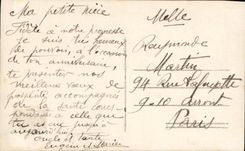 Ma petite nièce
Fidèle à notre promesse
je suis très heureux
de pouvoir, à l'occasion
de ton anniversaire,
te présenter nos
meilleurs vœux de
accompagnés
de la santé
à celle que
aujourd'hui
oncle et tante
Eugène et
Melle
Raymonde
Martin
94 Rue Lafayette
9-10 Arront
Paris